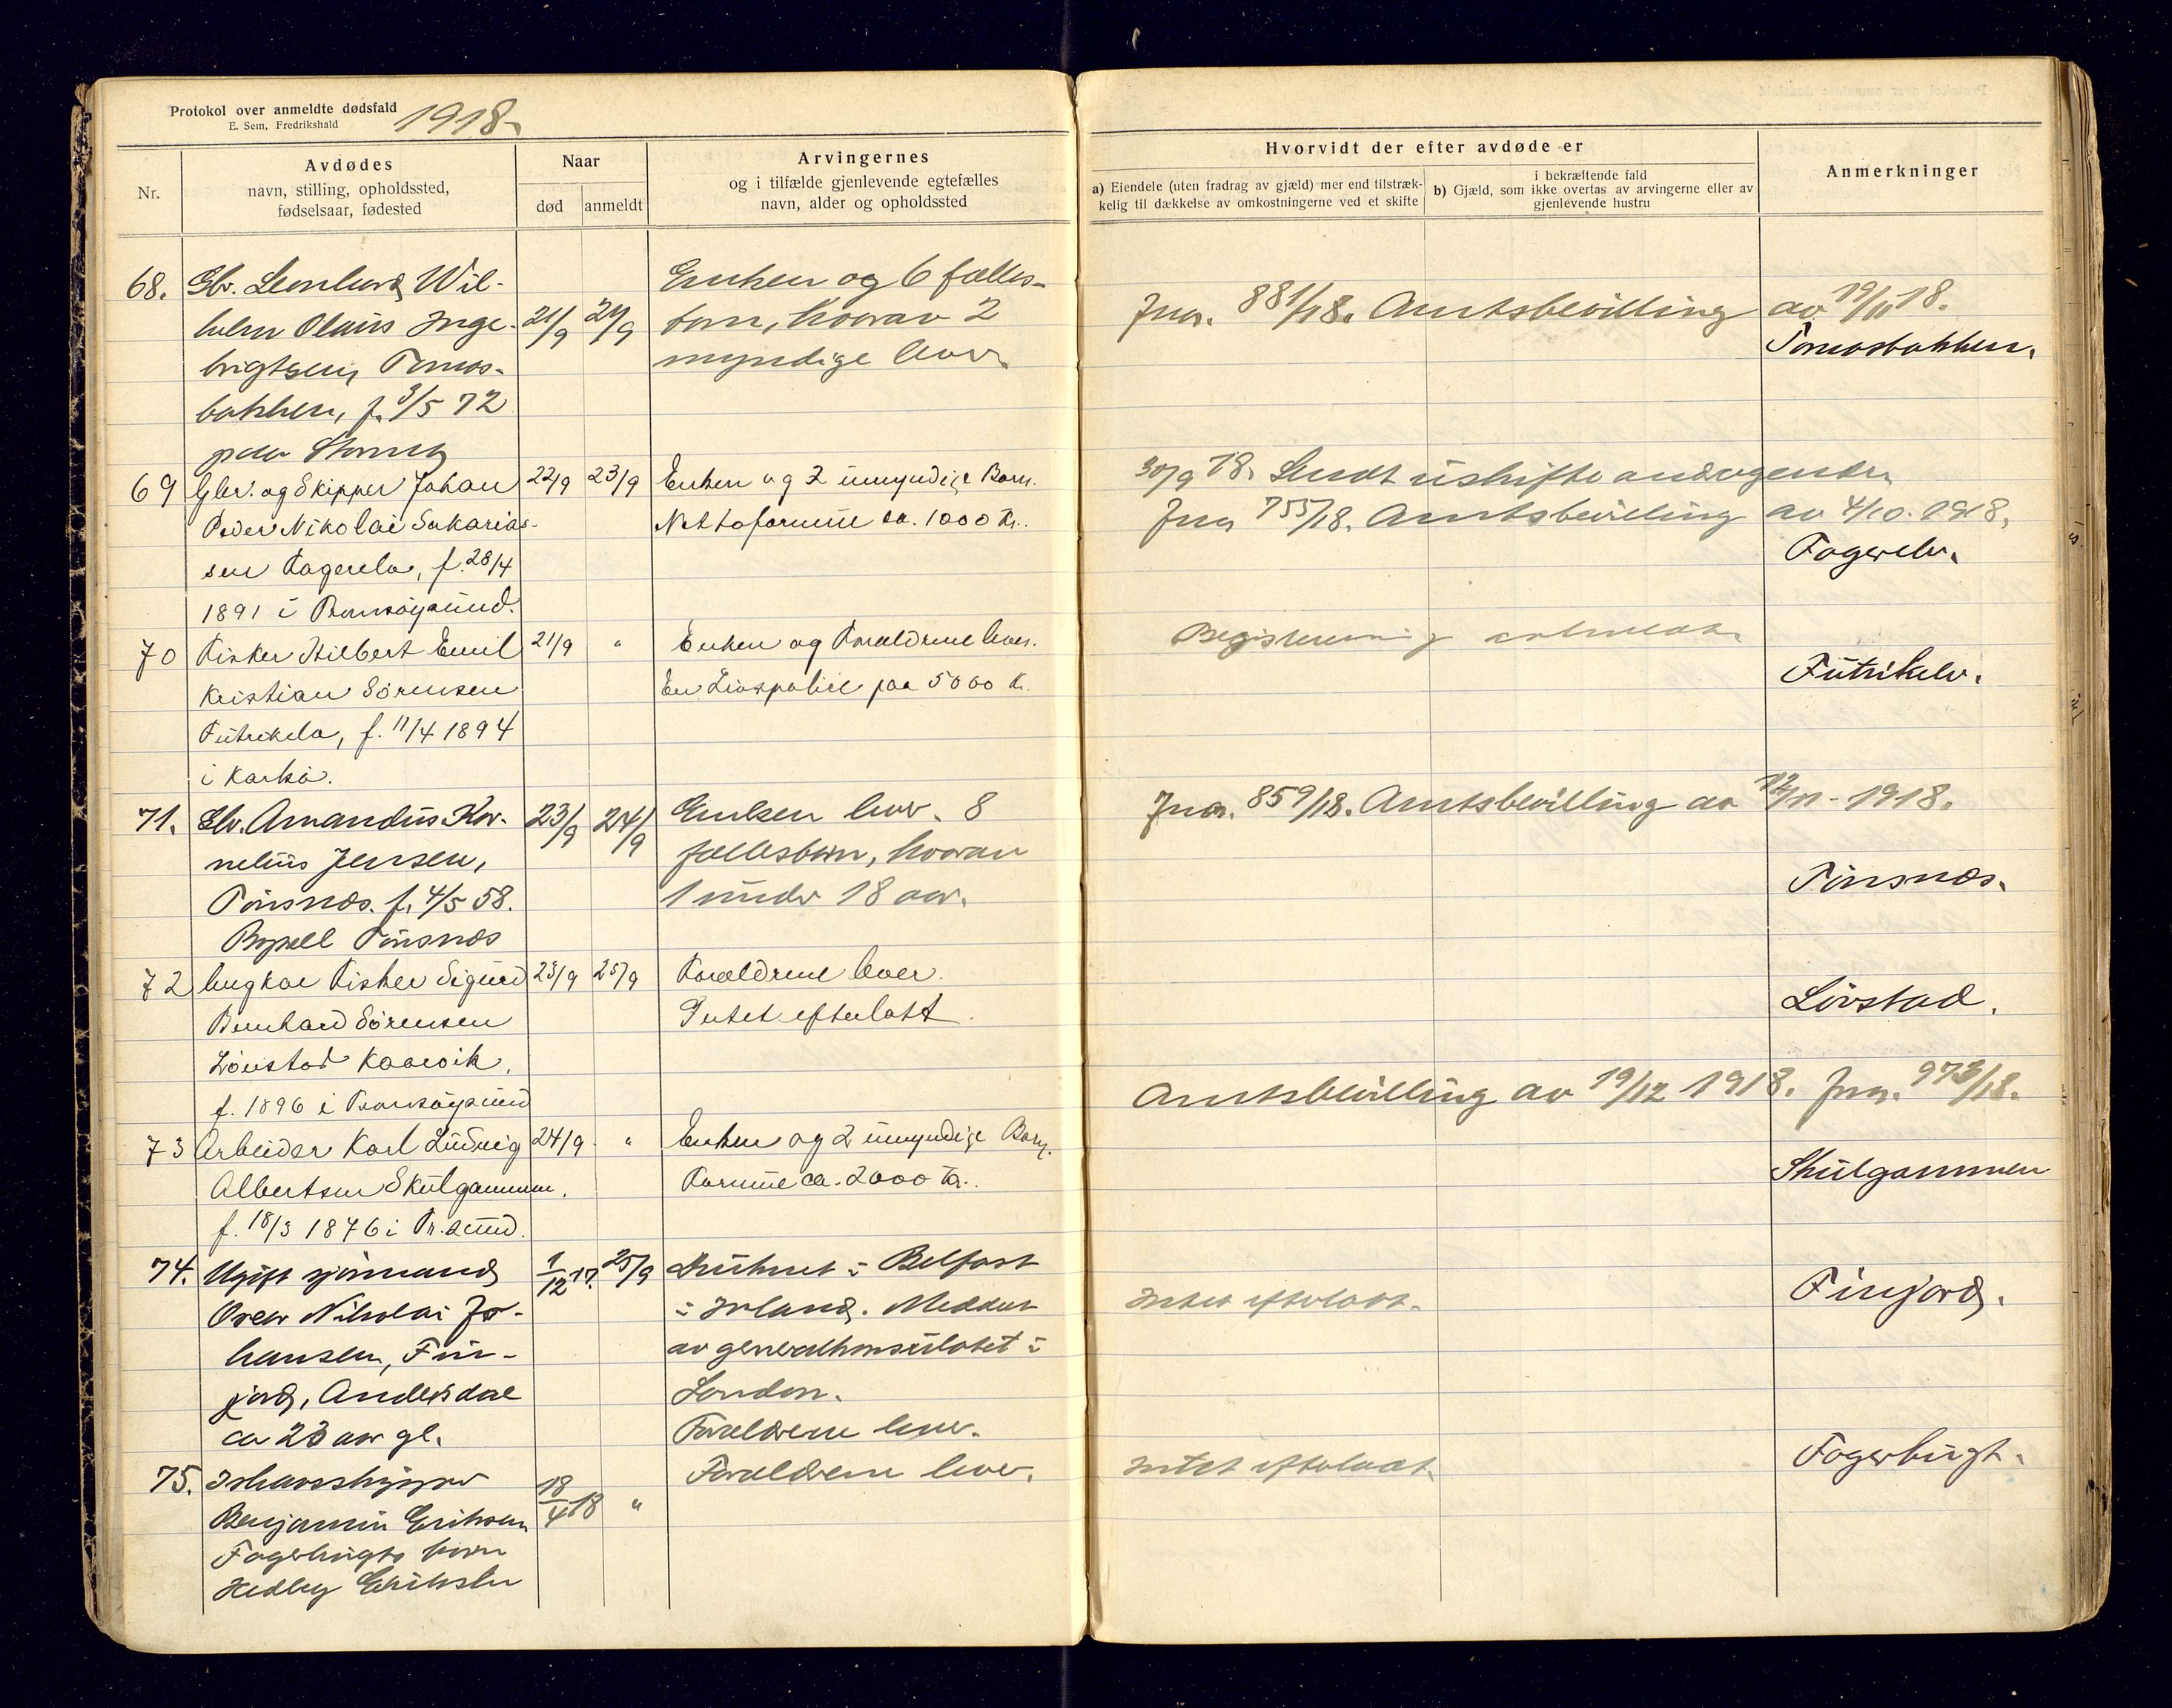 Protokol over anmeldte dødsfald
E. Sem, Fredrikshald
1918.
Nr.
Avdødes
navn, stilling, opholdssted,
fødselsaar, fødested
Naar
død
anmeldt
Arvingernes
og i tilfælde gjenlevende egtefælles
navn, alder og opholdssted
Hvorvidt der efter avdøde er
a) Eiendele (uten fradrag av gjæld) mer end tilstræk-
kelig til dækkelse av omkostningerne ved et skifte
i bekræftende fald
b) Gjæld, som ikke overtas av arvingerne eller av
gjenlevende hustru
Anmerkninger
68. Gbr. Leonhard Wil-
helm Olaus Inge-
brigtsen, Tomas-
bakken, f. 3/5 72
paa
21/9 24/9
Enken og 6 fælles-
børn, hvorav 2
myndige lever
Jnr. 881/18. Amtsbevilling av 19/11 18.
Tomasbakken.
69 Gbr. og Skipper Johan
Peder Nikolai Sakarias-
sen Fagerelv, f. 28/4
1891 i Tromsøysund.
22/9 23/9
Enken og 2 umyndige Børn.
Nettoformue ca. 1000 Kr.
30/9 18. Sendt uskifteandragende.
Jnr. 755/18. Amtsbevilling av 4/10. 1918.
Fagerelv.
70 Fisker Hilbert Emil
Kristian Sørensen
Futrikelv, f. 11/4 1894
i Karlsø.
21/9 "
Enken og Forældrene lever.
En Livspolice paa 5000 Kr.
Registrering
Futrikelv.
71. Gbr. Amandus Kor-
nelius Jensen,
Finsnes. f. 4/5 58.
Finsnes
23/9 24/9
Enken lever. 8
fællesbørn, hvorav
1 under 18 aar.
Jnr. 859/18. Amtsbevilling av 12/11 - 1918.
Finsnes.
72 Ungkar Fisker Sigurd
Bernhard Sørensen
Løvstad Kaavik.
f. 1896 i Tromsøysund
23/9 25/9
Forældrene lever.
Intet efterlatt.
Løvstad.
73 Arbeider Karl Ludvig
Albertsen Skulgammen.
f. 18/3 1876 i Tr.sund.
24/9 "
Enken og 2 umyndige Børn.
Formue ca. 2000 Kr.
Amtsbevilling av 19/12 1918. Jnr. 973/18.
Skulgammen
74. Ugift sjømand
Oscar Nikolai Jo-
hansen, Fin-
jord, Andersdal
ca 23 aar gl.
1/12 17. 25/9
Druknet i Belfast
i Irland. Meddelt
av generalkonsulatet i
London.
Forældrene lever.
Intet efterlatt.
Finjord.
75. Ishavsskipper
Benjamin Eriksen
Fagerbugts barn
Hedley Eriksen
18/4 18 "
Forældrene lever.
Intet efterlatt.
Fagerbugt.